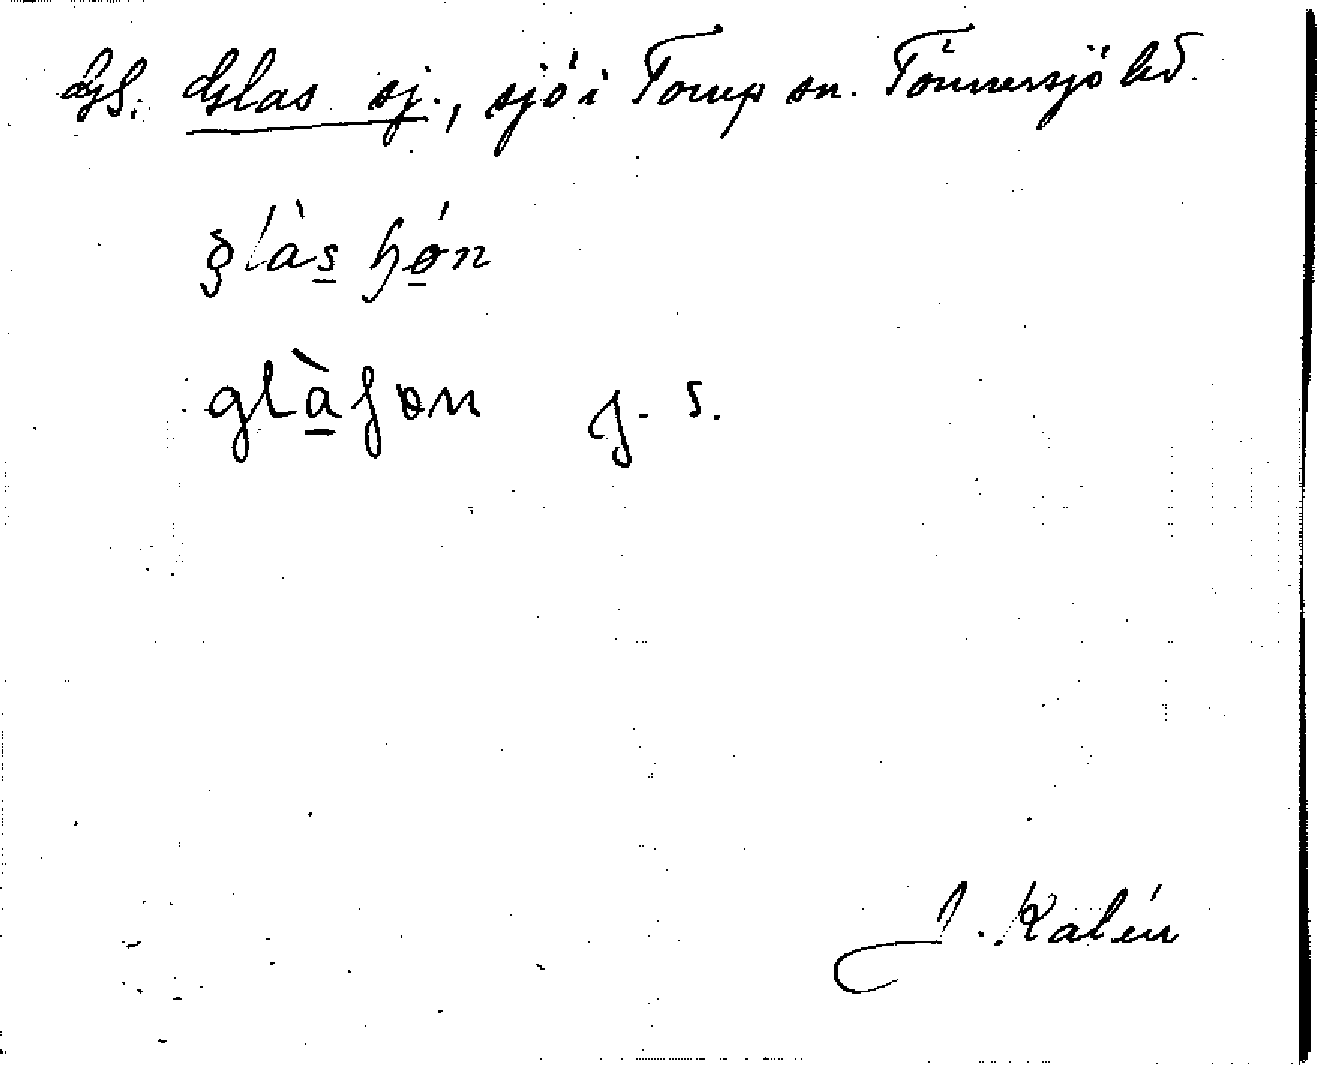 GS. Glas sj., sjö i Torup sn. Tönnersjö hd.
glàs
glàʃøn g. s.
J. Kalén